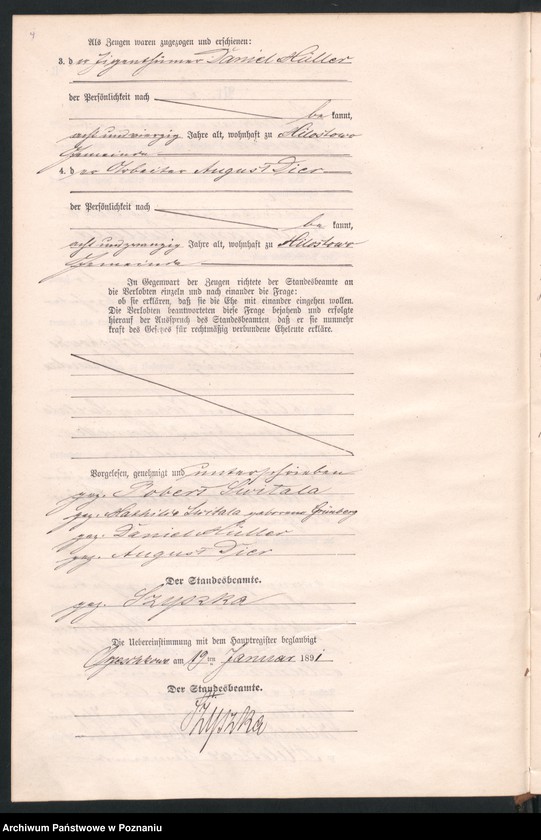 Als Zeugen waren zugezogen und erschienen:
3. der Eigenthümer Daniel Hüller
der Persönlichkeit nach
bekannt,
acht und vierzig Jahre alt, wohnhaft zu
Gemeinde
4. der Arbeiter August Dier
der Persönlichkeit nach
bekannt,
acht und zwanzig Jahre alt, wohnhaft zu
Gemeinde
In Gegenwart der Zeugen richtete der Standesbeamte an
die Verlobten einzeln und nach einander die Frage:
ob sie erklären, daß sie die Ehe mit einander eingehen wollen.
Die Verlobten beantworteten diese Frage bejahend und erfolgte
hierauf der Ausspruch des Standesbeamten, daß er sie nunmehr
kraft des Gesetzes für rechtmäßig verbundene Eheleute erkläre.
Vorgelesen, genehmigt und unterschrieben
gez. Robert Switala
gez. Mathilde Switala geborene Grünberg
gez. Daniel Hüller
gez. August Dier
Der Standesbeamte.
gez. Szyszka
Die Uebereinstimmung mit dem Hauptregister beglaubigt
am 19ten Januar 1891
Der Standesbeamte.
Szyszka
Archiwum Państwowe w Poznaniu